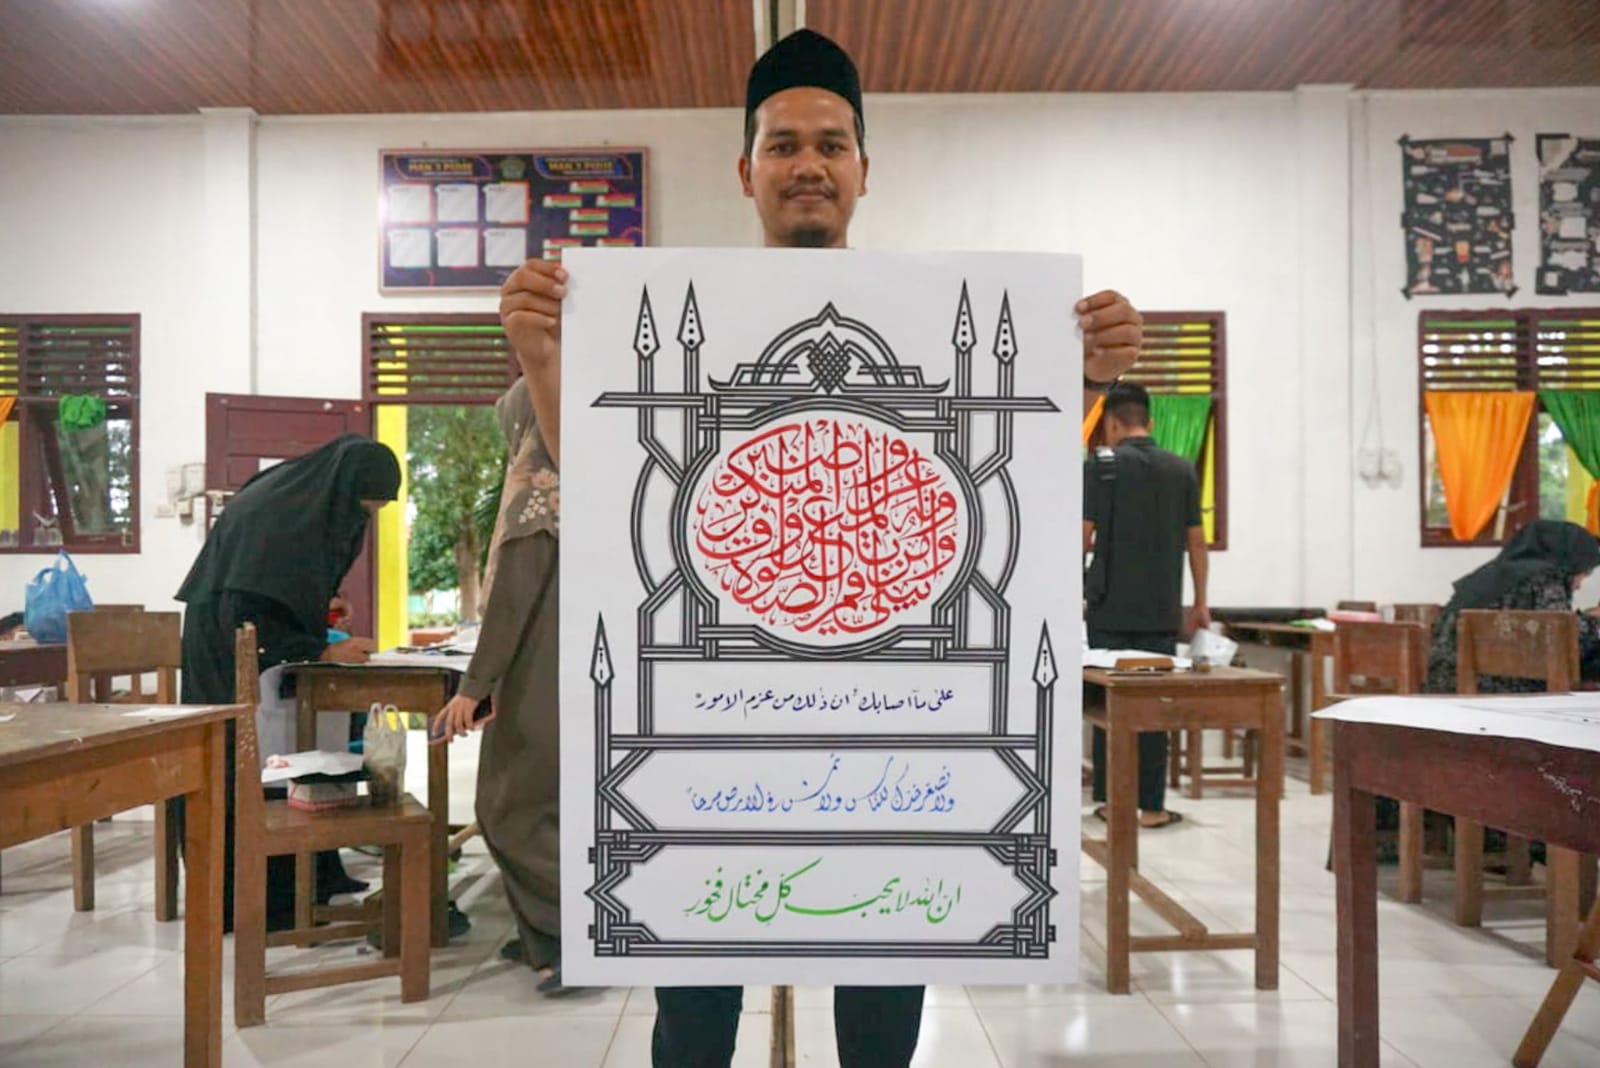 MAN PIDIE
MAN PIDIE
يبنيّ اقم الصّلوة وأمر بالمعروف وانه عن المنكر واصبر
على مآ اصابك ان ذٰلك من عزم الامور
ولا تصعّر خدك للناس ولا تمش في الارض مرحاً
ان الله لا يحب كل مختال فخور